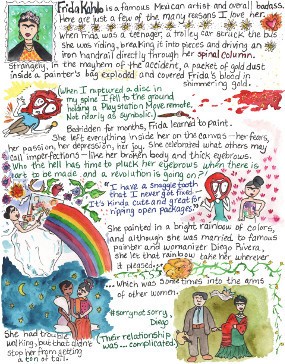 Frida Kahlo is a famous Mexican artist and overall badass.
Here are just a few of the many reasons I love her.
When Frida was a teenager, a trolley car struck the bus
she was riding, breaking it into pieces and driving an
iron handrail directly through her spinal column.
Strangely, in the mayhem of the accident, a packet of gold dust
inside a painter's bag exploded and covered Frida's blood in
shimmering gold.
(When I ruptured a disc in
my spine I fell to the ground
holding a PlayStation Move remote.
Not nearly as symbolic.)
Bedridden for months, Frida learned to paint.
She left everything inside her on the canvas—her fears,
her passion, her depression, her joy. She celebrated what others may
call imperfections—like her broken body and thick eyebrows.
Who the hell has time to pluck her eyebrows when there is
art to be made and a revolution is going on?!
"I have a snaggletooth
that I never got fixed.
It's kinda cute and great for
ripping open packages."
She painted in a bright rainbow of colors,
and although she was married to famous
painter and womanizer Diego Rivera,
she let that rainbow take her wherever
it pleased...
...which was sometimes into the arms
of other women.
#sorrynotsorry
Diego
(Their relationship
was...complicated.)
She had trouble
walking, but that didn't
stop her from getting
a ton of tail.